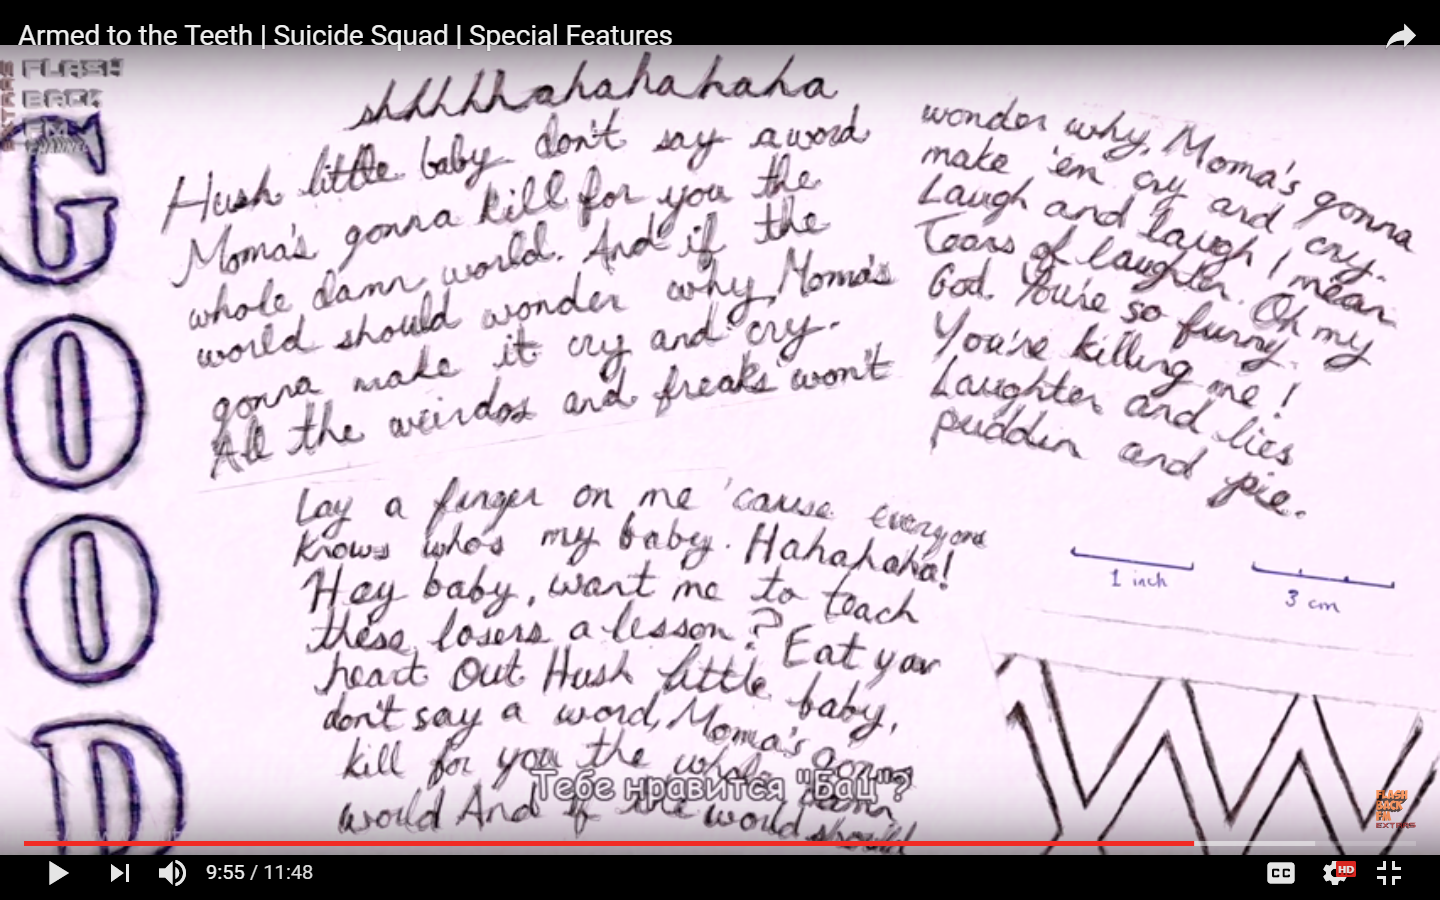 Armed to the Teeth | Suicide Squad | Special Features
EXTRAS
FLASH
BACK
FM
CHANNEL
GOOD
shhhhhahahahaha
Hush little baby don't say a word
Moma's gonna kill for you the
whole damn world. And if the
world should wonder why, Moma's
gonna make it cry and cry.
All the weirdos and freaks won't
Lay a finger on me 'cause everyone
knows who's my baby. Hahahaha!
Hey baby, want me to teach
these losers a lesson? Eat your
heart out Hush little baby,
don't say a word, Moma's gonna
kill for you the whole damn
world And if the world should
wonder why, Moma's gonna
make 'em cry and cry.
Laugh and laugh, I mean
Tears of laughter. Oh my
God. You're so funny.
You're killing me!
Laughter and lies
puddin and pie.
1 inch
3 cm
W
Тебе нравится "Бац"?
FLASH
BACK
FM
EXTRAS
9:55 / 11:48
CC
HD